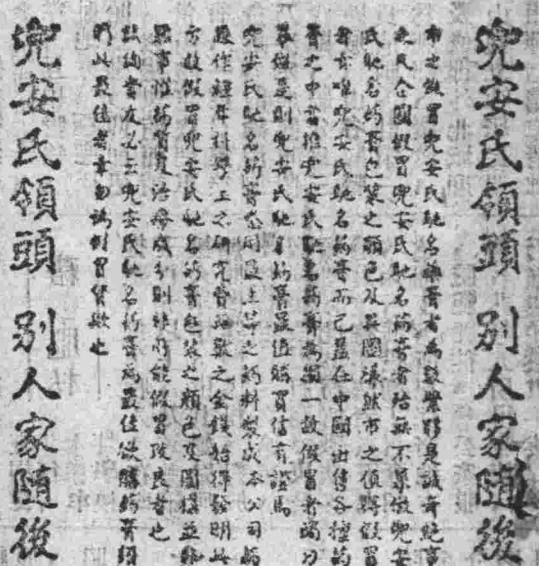 兜安氏領頭 別人家隨後
市之仿冒兜安氏馳名藥膏者為數
之凡企圖假冒兜安氏馳名藥膏者殆無不摹倣兜安
氏馳名藥膏包裝之顏色及其圖樣然市之假冒
者唯兜安氏馳名藥膏而已蓋在中國出售各種藥
膏之中首推兜安氏馳名藥膏為獨一故假冒者竭力
摹倣是則兜安氏馳名藥膏最值購買信有證焉
兜安氏馳名藥膏用最上等之藥料製成本公司
經年科學上之研究費無數之金錢始得發明此
方故假冒兜安氏馳名藥膏包裝之顏色及圖樣並非
難事惟藥質及治療成分則非所能假冒改良者也
故購者必云兜安氏馳名藥膏為最佳欲購藥膏須
購此最佳者幸勿誤冒貨也
兜安氏領頭 別人家隨後